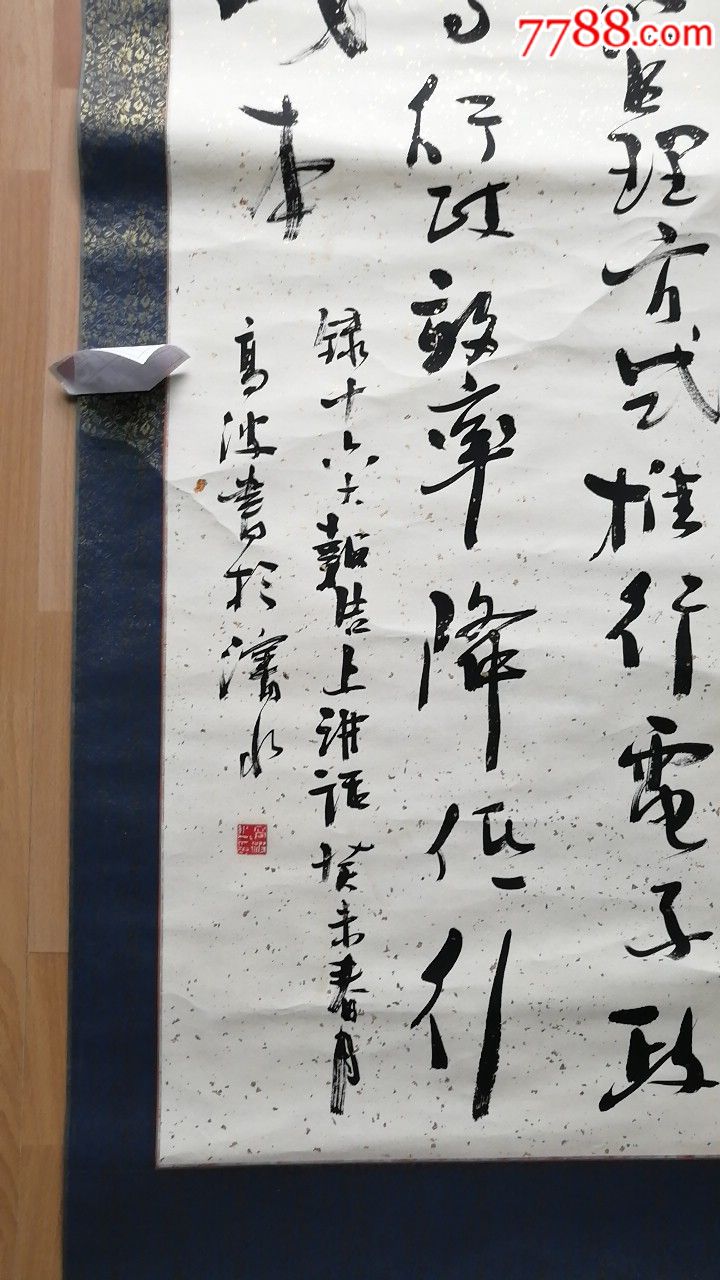 7788.com
理方式推行電子政
行政效率降低行
本
録十六大報告上講話 癸未春月
高波書於瀋水